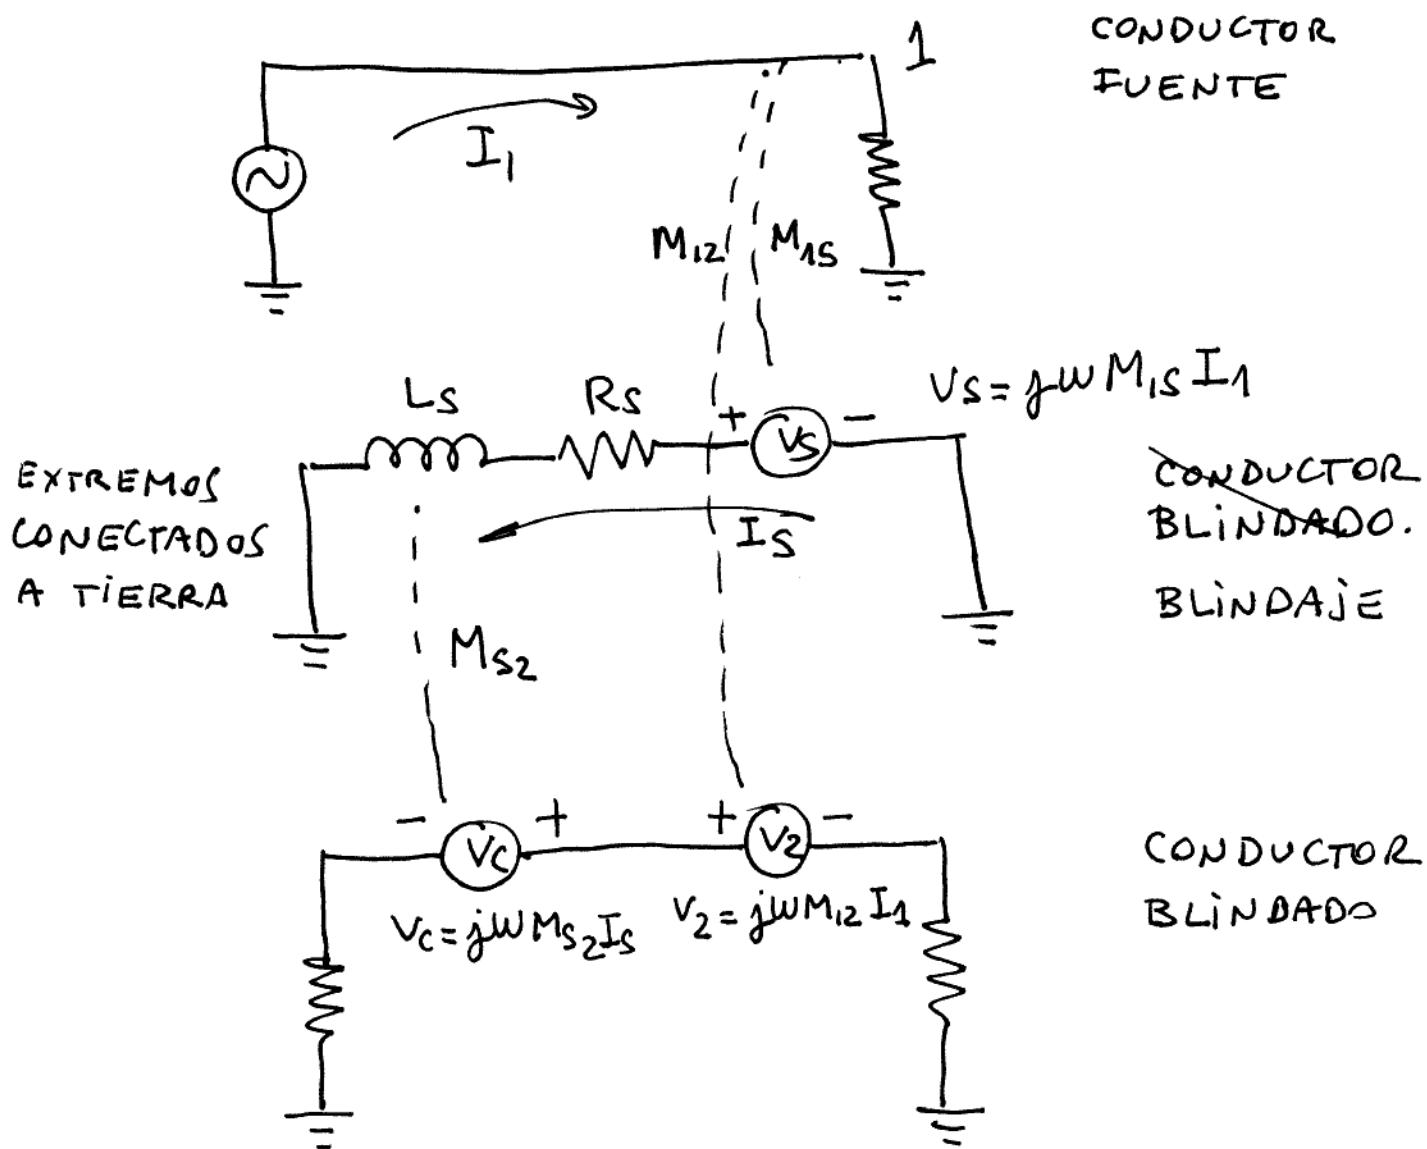 CONDUCTOR
FUENTE
1
I₁
M₁₂
M₁S
LS
RS
+
VS
−
VS = jωM₁S I₁
EXTREMOS
CONECTADOS
A TiERRA
IS
CONDUCTOR
BLINDADO.
BLiNDAJE
MS2
−
VC
+
+
V2
−
VC = jωMS2IS
V2 = jωM12I1
CONDUCTOR
BLiNDADO